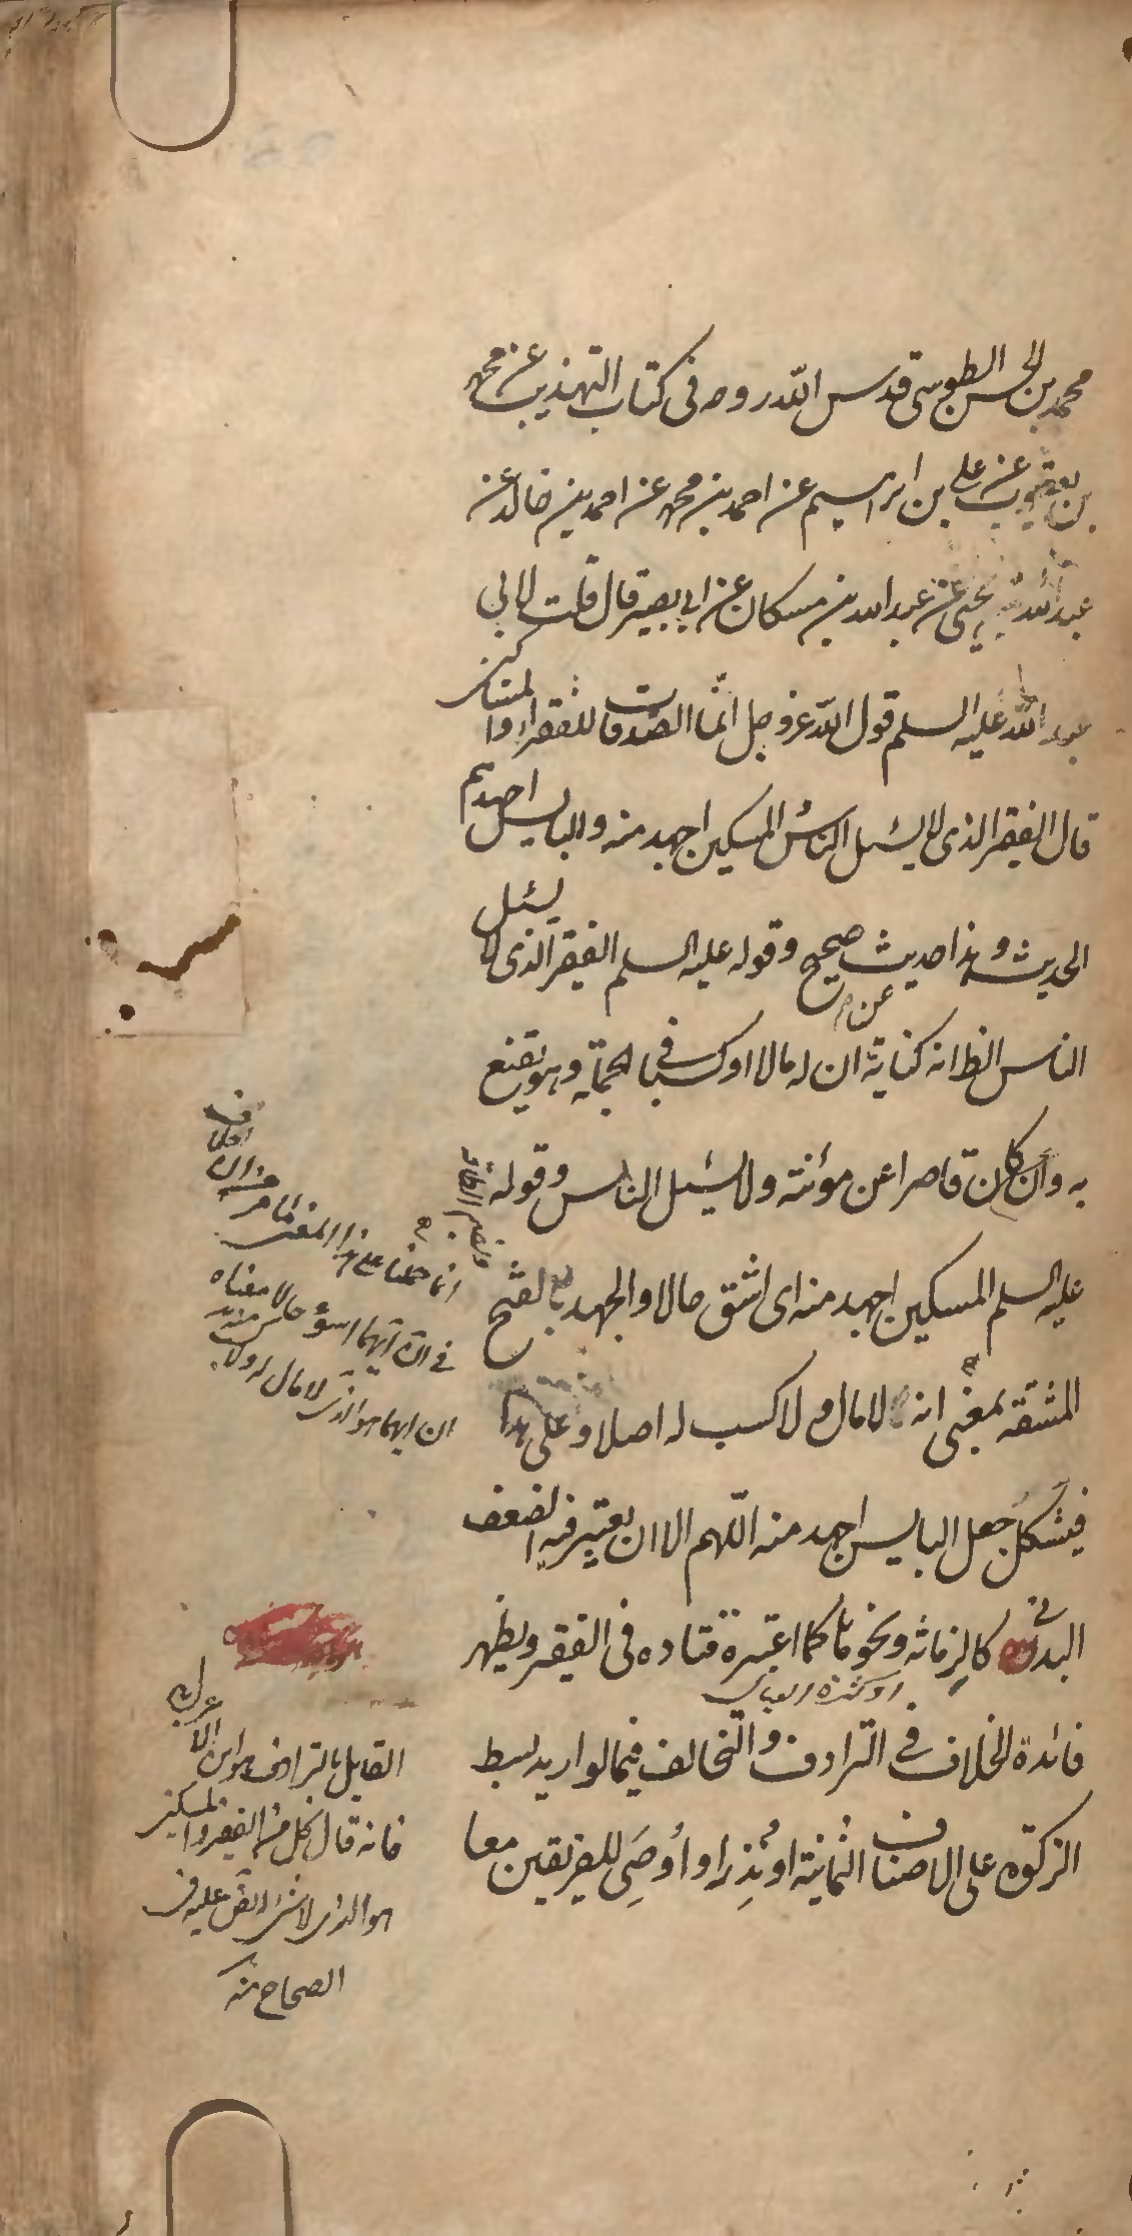 محمد بن الحسن الطوسى قدس الله روحه فى كتاب التهذيب عن محمد
بن يعقوب عن على بن ابراهيم عن احمد بن محمد عن احمد بن خالد عن
عبد الله بن يحيى عن عبد الله بن مسكان عن ابى بصير قال قلت لابى
عبد الله عليه السلم قول الله عز وجل انّما الصّدقات للفقراء والمساكين
قال الفقير الذى لا يسئل الناس المسكين اجهد منه والبايس اجهدهم
الحديث وهذا حديث صحيح وقوله عليه السلم الفقير الذى لا يسئل
الناس الظ انه كناية عن ان له مالا او كسبا فى الجملة وهو يقنع
به وان كان قاصرا عن مؤنته ولا يسئل الناس وقوله
عليه السلم المسكين اجهد منه اى اشق حالا والجهد بالفتح
المشقة بمعنى انه لا مال ولا كسب له اصلا وعلى هذا
فيشكل جعل البايس اجهد منه اللّهم الا ان يعتبر فيه الضعف
البدنى كالزمانة ونحوها كما اعتبره قتاده فى الفقير ويظهر
او كثرة العيال
فائدة الخلاف فى الترادف والتخالف فيما لو اريد بسط
الزكوة على الاصناف الثمانية او نُذِر او اُوصِىَ للفريقين معا
انما حملنا على هذا المعنى
فى ان ايهما اسوؤ حالا معناه
ان ايهما هو الذى لا مال له ولا
القايل بالترادف هو ابن الاعرابى
فانه قال كل من الفقير والمسكين
هو الذى لا شئ له نص عليه فى
الصحاح منه